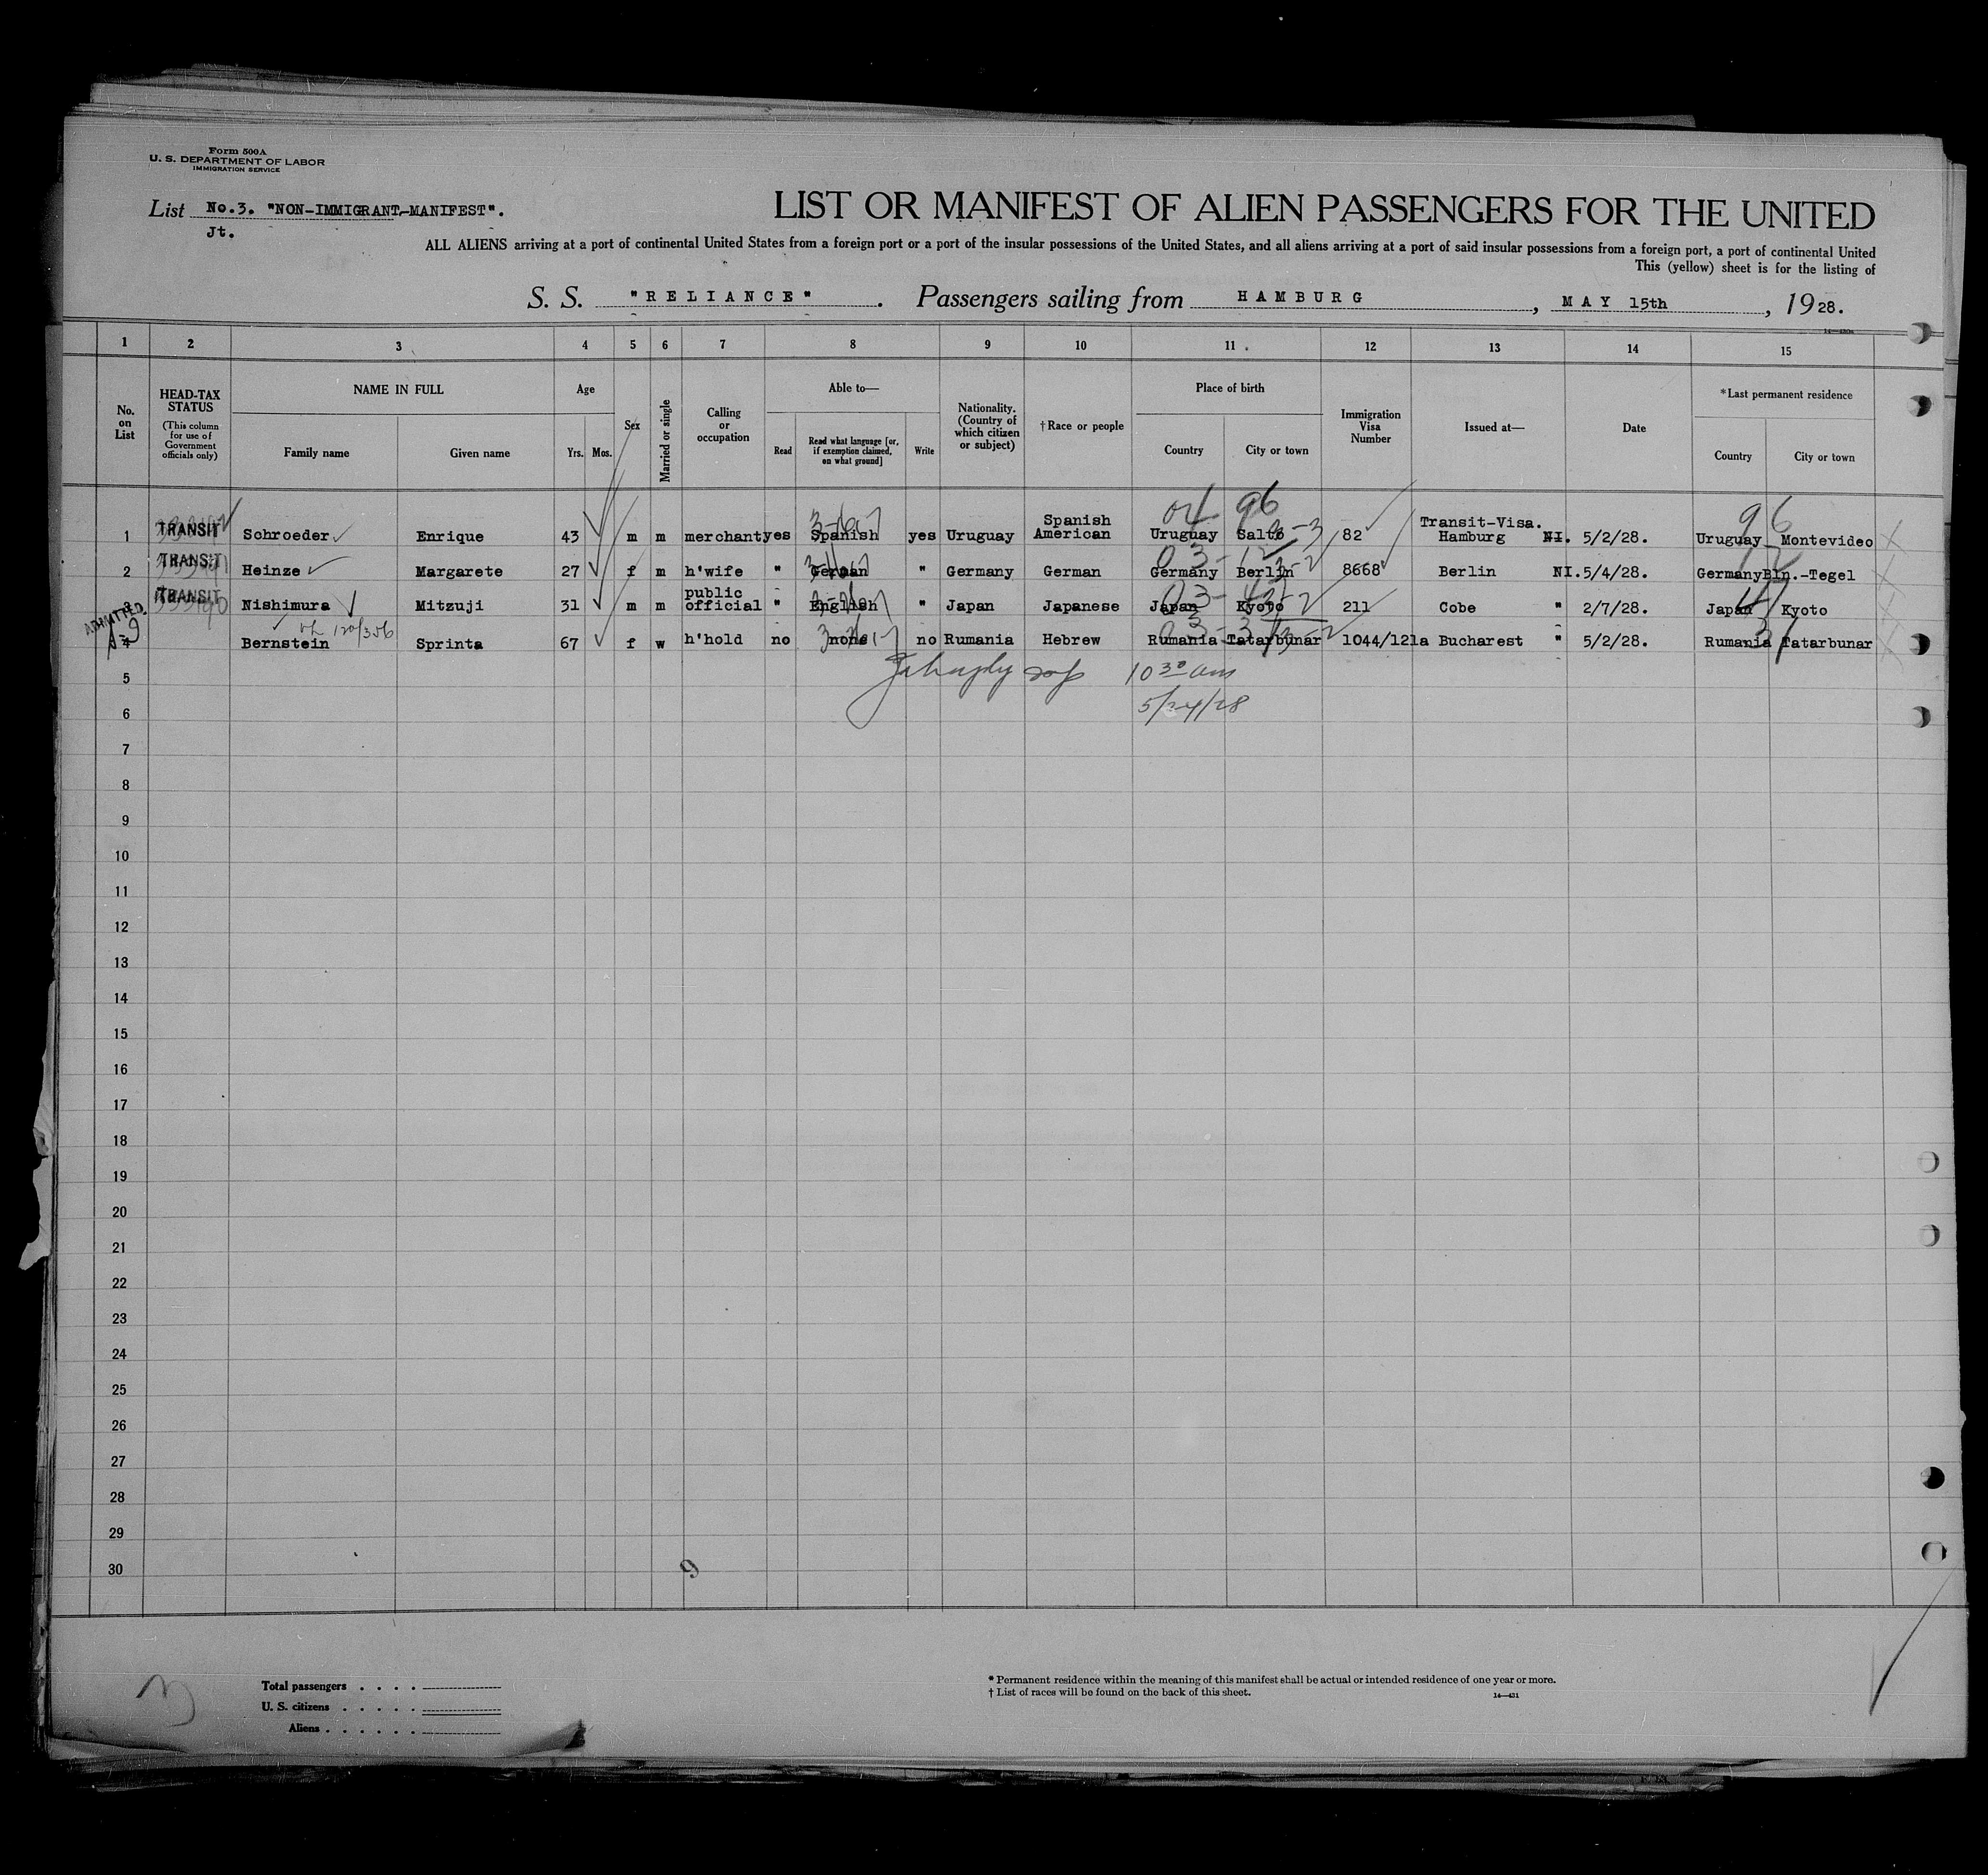 Form 500A
U. S. DEPARTMENT OF LABOR
IMMIGRATION SERVICE
List No.3. "NON-IMMIGRANT-MANIFEST".
Jt.
LIST OR MANIFEST OF ALIEN PASSENGERS FOR THE UNITED
ALL ALIENS arriving at a port of continental United States from a foreign port or a port of the insular possessions of the United States, and all aliens arriving at a port of said insular possessions from a foreign port, a port of continental United
This (yellow) sheet is for the listing of
S. S. "RELIANCE". Passengers sailing from HAMBURG, MAY 15th, 1928.
1 2 3 4 5 6 7 8 9 10 11 12 13 14 15
No. on List
HEAD-TAX STATUS
(This column for use of Government officials only)
NAME IN FULL
Family name Given name
Age
Yrs. Mos.
Sex
Married or single
Calling or occupation
Able to—
Read
Read what language [or, if exemption claimed, on what ground]
Write
Nationality. (Country of which citizen or subject)
†Race or people
Place of birth
Country City or town
Immigration Visa Number
Issued at—
Date
*Last permanent residence
Country City or town
04 96 96
1 TRANSIT Schroeder Enrique 43 m m merchant yes Spanish yes Uruguay Spanish American Uruguay Salto 82 Transit-Visa. Hamburg NI. 5/2/28. Uruguay Montevideo
2 TRANSIT Heinze Margarete 27 f m h'wife " German " Germany German Germany Berlin 8668 Berlin NI. 5/4/28. Germany Bln.-Tegel
3 TRANSIT Nishimura Mitzuji 31 m m public official " English " Japan Japanese Japan Kyoto 211 Cobe " 2/7/28. Japan Kyoto
ADMITTED.
4 Bernstein Sprinta 67 f w h'hold no none no Rumania Hebrew Rumania Tatarbunar 1044/121a Bucharest " 5/2/28. Rumania Tatarbunar
5 10 30 am
6 5/24/28
7
8
9
10
11
12
13
14
15
16
17
18
19
20
21
22
23
24
25
26
27
28
29
30
9
Total passengers
U. S. citizens
Aliens
* Permanent residence within the meaning of this manifest shall be actual or intended residence of one year or more.
† List of races will be found on the back of this sheet.
14—431
3